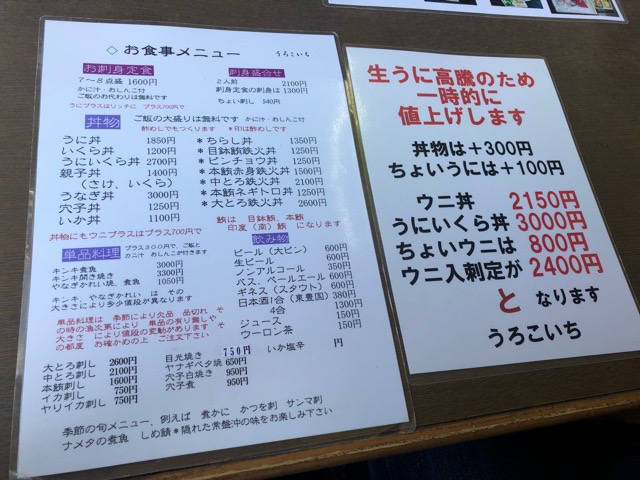 ◇ お食事メニュー うろこいち
お刺身定食
7〜8点盛 1600円
かに汁・おしんこ付
ご飯のお代わりは無料です
うにプラスはリッチに プラス700円で
刺身盛合せ
2人前 2100円
刺身定食の刺身は 1300円
ちょい刺し 540円
丼物 ご飯の大盛りは無料です かに汁・おしんこ付
酢めしでもつくります *印は酢めしです
うに丼 1850円
いくら丼 1200円
うにいくら丼 2700円
親子丼 1400円
(さけ、いくら)
うなぎ丼 3000円
穴子丼 1250円
いか丼 1100円
*ちらし丼 1350円
*目鉢鮪鉄火丼 1250円
*ビンチョウ丼 1250円
*本鮪赤身鉄火丼 1500円
*中とろ鉄火丼 2100円
*本鮪ネギトロ丼 1250円
*大とろ鉄火丼 2600円
丼物にもウニプラスはプラス700円で
鮪は 目鉢鮪、本鮪
印度(南)鮪 になります
単品料理 プラス300円で、ご飯と
カニ汁 おしんこが付きます
キンキ煮魚 3000円
キンキ開き焼き 3300円
やなぎかれい焼、煮魚 1050円
キンキ、やなぎかれい は その
大きさにより多少値段が異なります
単品料理は 季節により欠品 品切れ そ
の時の漁次第により 単品の有り無しや
大きさ により値段の変動があります そ
の都度 お確かめの上 ご注文下さい
飲み物
ビール(大ビン) 600円
生ビール 600円
ノンアルコール 350円
バス、ペールエール 600円
ギネス(スタウト) 600円
日本酒1合(東豊国) 380円
4合 1300円
ジュース 150円
ウーロン茶 150円
大とろ刺し 2600円
中とろ刺し 2100円
本鮪刺し 1600円
イカ刺し 750円
ヤリイカ刺し 750円
目光焼き 750円
ヤナギベタ焼 650円
穴子白焼き 950円
穴子煮 950円
いか塩辛 円
季節の旬メニュー、例えば 煮かに かつを刺 サンマ刺
ナメタの煮魚 しめ鯖*隠れた常盤沖の味をお楽しみ下さい
生うに高騰のため
一時的に
値上げします
丼物は+300円
ちょいうには+100円
ウニ丼 2150円
うにいくら丼 3000円
ちょいウニは 800円
ウニ入刺定が 2400円
と なります
うろこいち